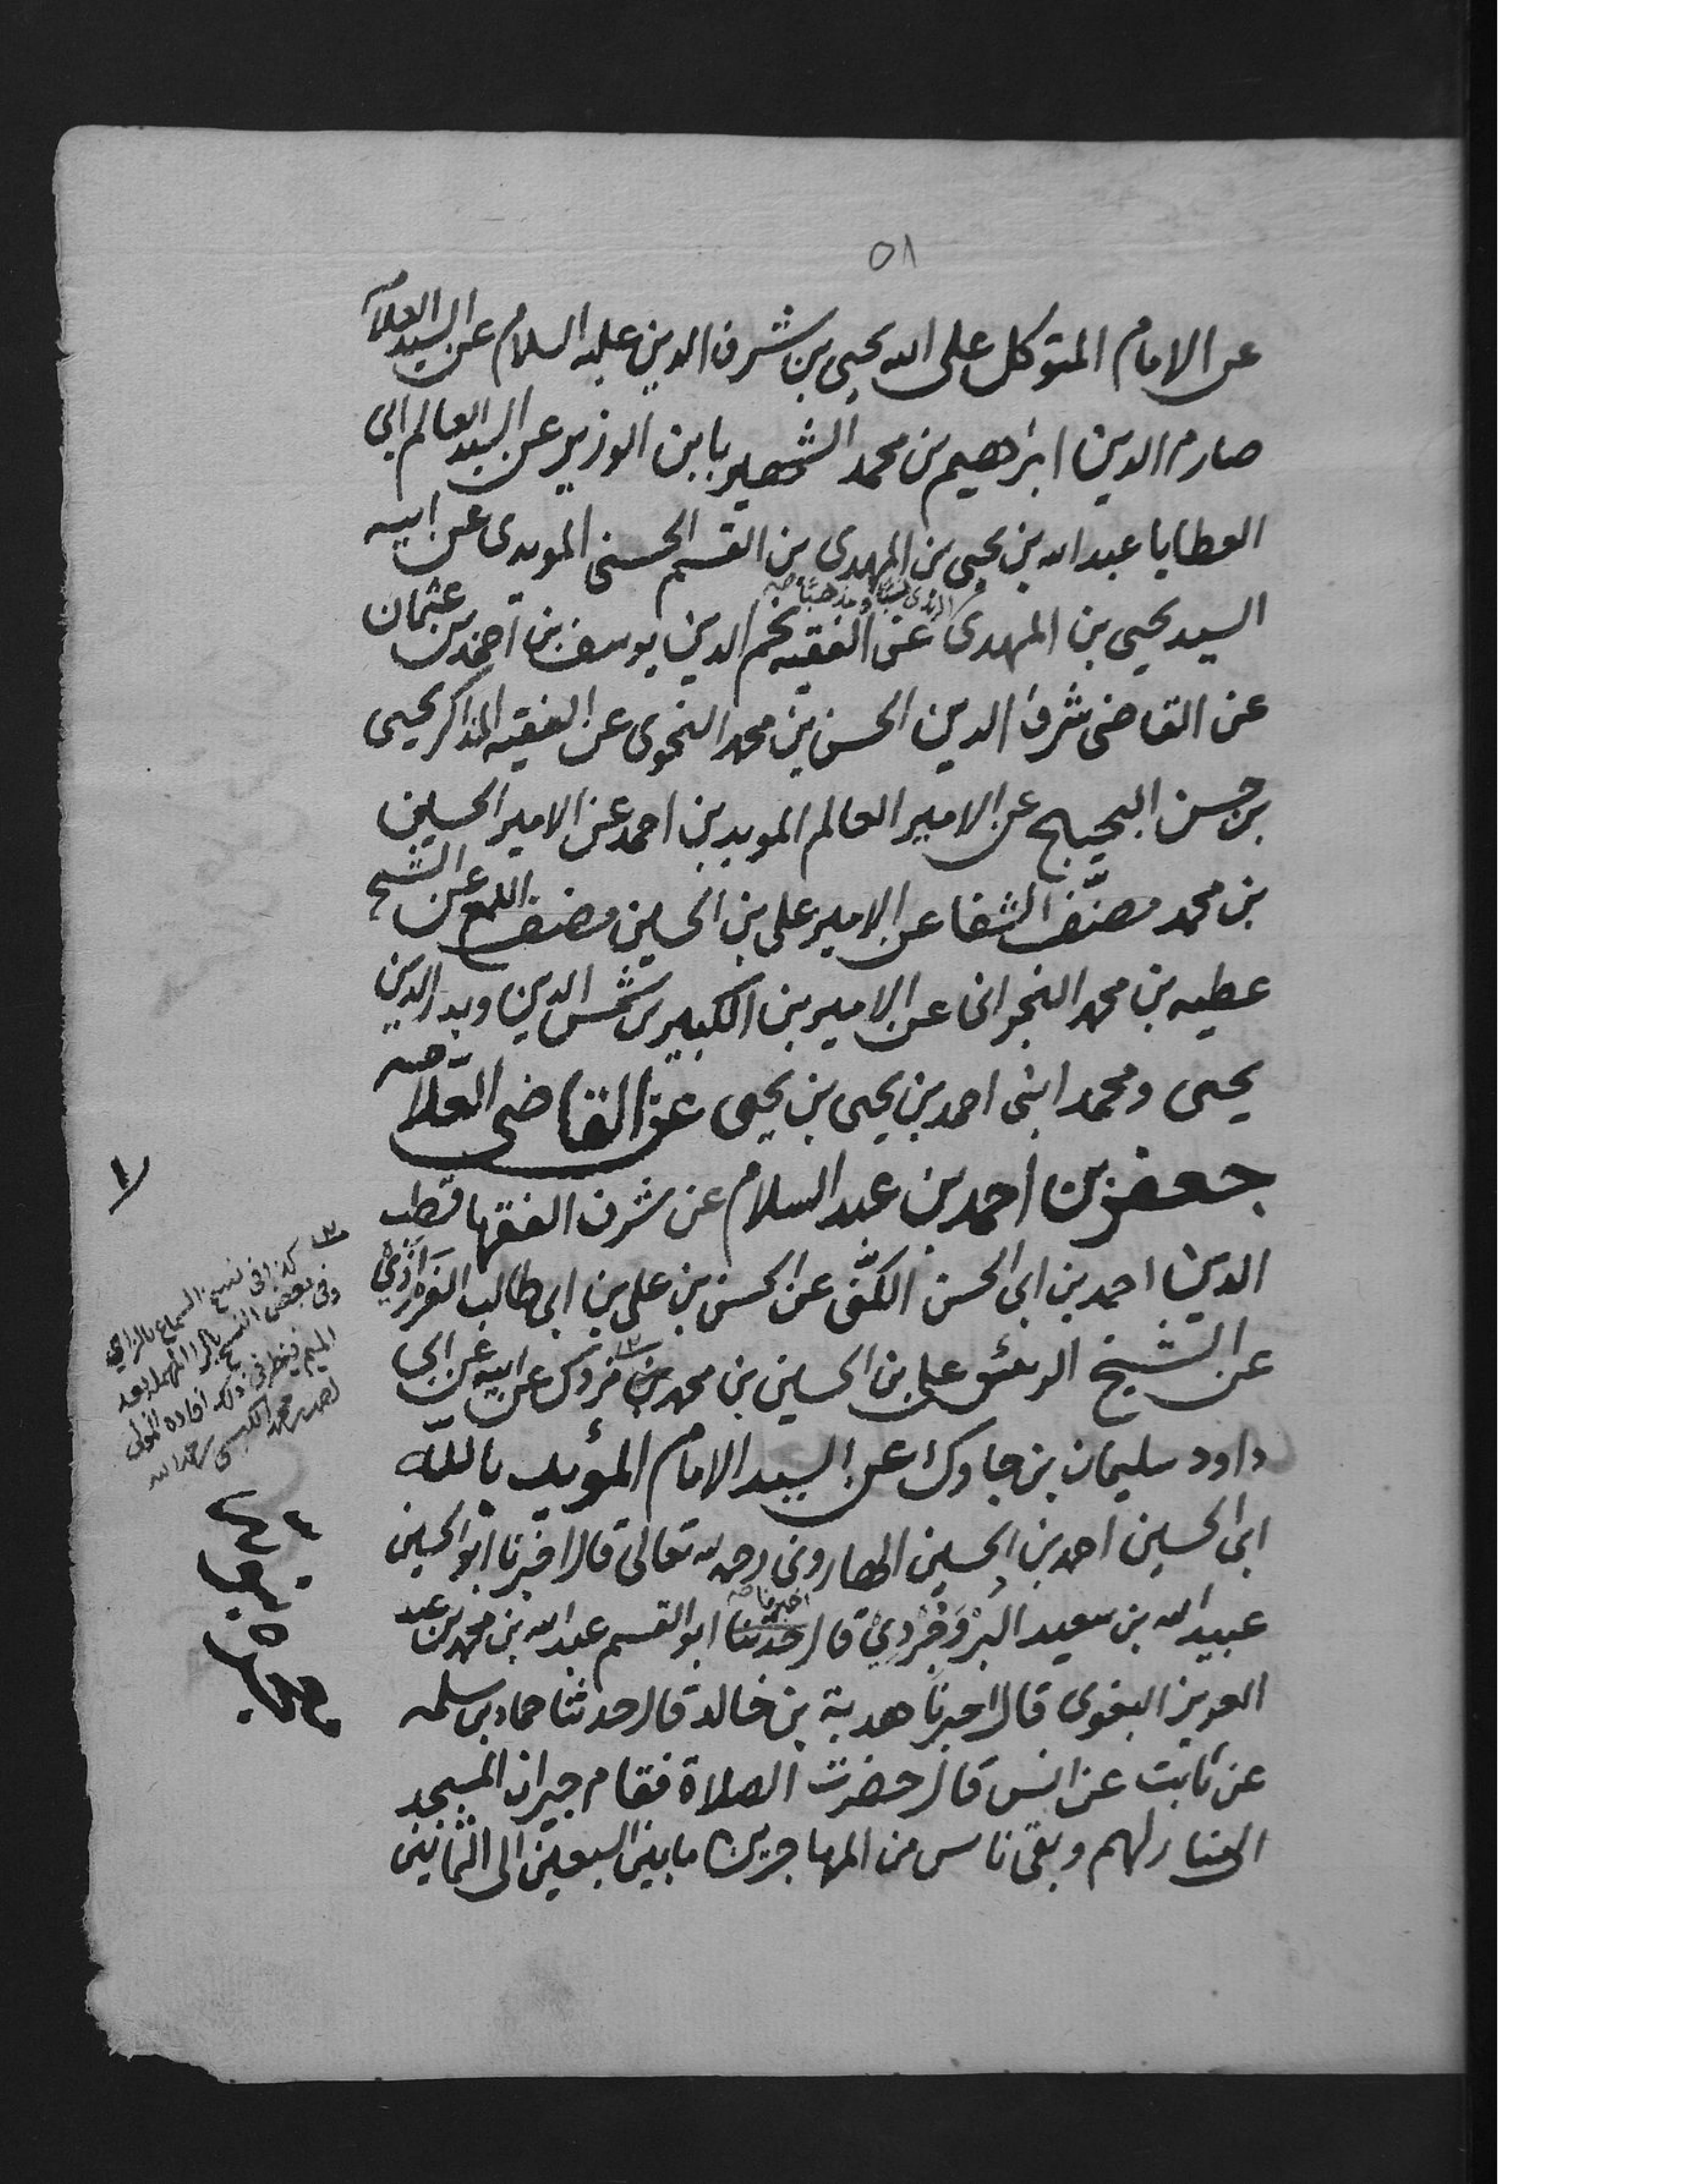 ٥١
عن الامام المتوكل على الله يحيى بن شرف الدين عليه السلام عن السيد العلامه
صارم الدين ابراهيم بن محمد الشهير بابن الوزير عن السيد العالم ابي
العطايا عبد الله بن يحيى بن المهدى بن القسم الحسنى المويدى عن ابيه
الزيدى نسبًا ومذهبًا صح
السيد يحيى بن المهدى عن الفقيه نجم الدين يوسف بن احمد بن عثمان
عن القاضى شرف الدين الحسن بن محمد النحوى عن الفقيه المذاكر يحيى
بن حسن البحيبح عن الامير العالم المويد بن احمد عن الامير الحسين
بن محمد مصنّف الشفا عن الامير على بن الحسين مصنف اللمع عن الشيخ
عطيه بن محمد النجرانى عن الاميرين الكبيرين شمس الدين وبدر الدين
يحيى ومحمد ابنى احمد بن يحيى بن يحيى عن القاضى العلامه
جعفر بن احمد بن عبد السلام عن شرف الفقها قطب
الدين احمد بن ابى الحسن الكنّى عن الحسن بن على بن ابى طالب الفرزاذي
عن الشيخ الرئس على بن الحسين بن محمد بن مزدك عن ابيه عن ابى
داود سليمان بن جاوك عن السيد الامام المؤيد بالله
ابى الحسين احمد بن الحسين الهارونى رحمه الله تعالى قال اخبرنا ابو الحسين
اخبرنا صح
عبيد الله بن سعيد البروجردي قال حدثنا ابو القسم عبد الله بن محمد بن عبد
العزيز البغوى قال اخبرنا هدبة بن خالد قال حدثنا حماد بن سلمه
عن ثابت عن انس قال حضرت الصلاة فقام جيران المسجد
الى منازلهم وبقى ناس من المهاجرين ما بين السبعين الى الثمانين
كذا فى نسخ السماع بالزاي
وفى بعض النسخ بالرا المهمله بعد
الميم فينظر فى ذلك افاده المولى
محمد الكبسى رحمه الله